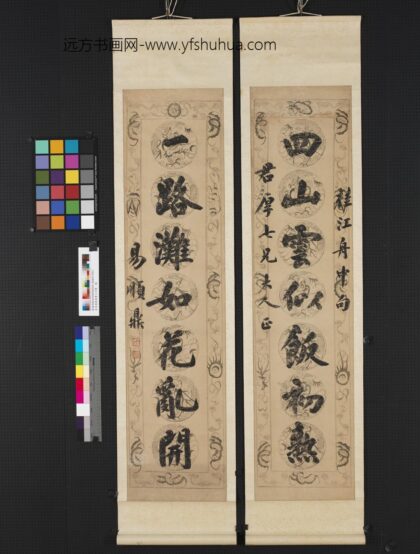 远方书画网-www.yfshuhua.com
桂江舟中句
四山雲似飯初熟
君厚七兄大人正
一路灘如花亂開
易順鼎